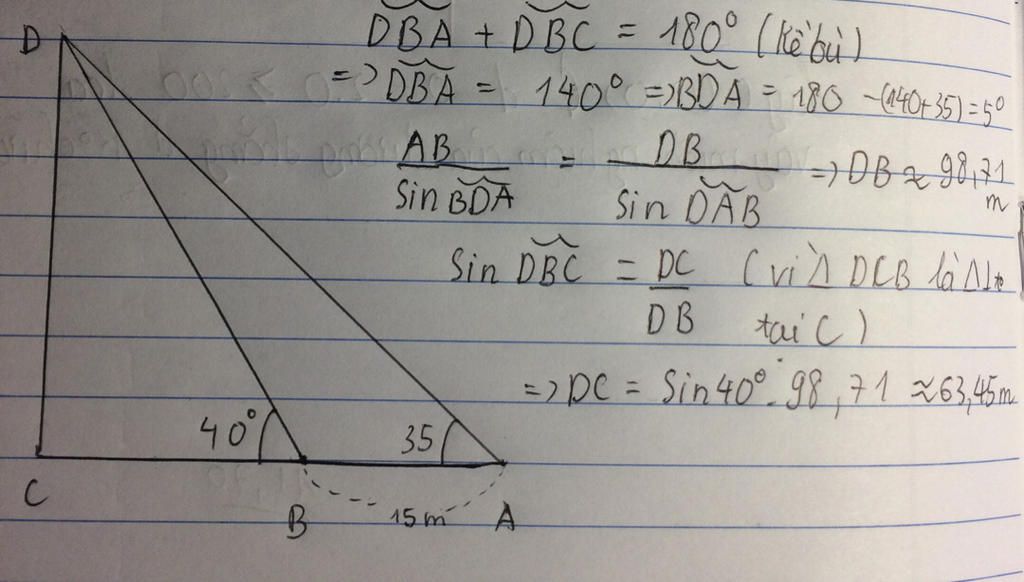 D
DBA + DBC = 180° (Kề bù)
=> DBA = 140° => BDA = 180 - (140+35) = 5°
AB / Sin BDA = DB / Sin DAB => DB ≈ 98,71 m
Sin DBC = DC / DB (vì Δ DCB là Δ
tại C)
=> DC = Sin 40° . 98,71 ≈ 63,45m
40° 35
C B 15m A